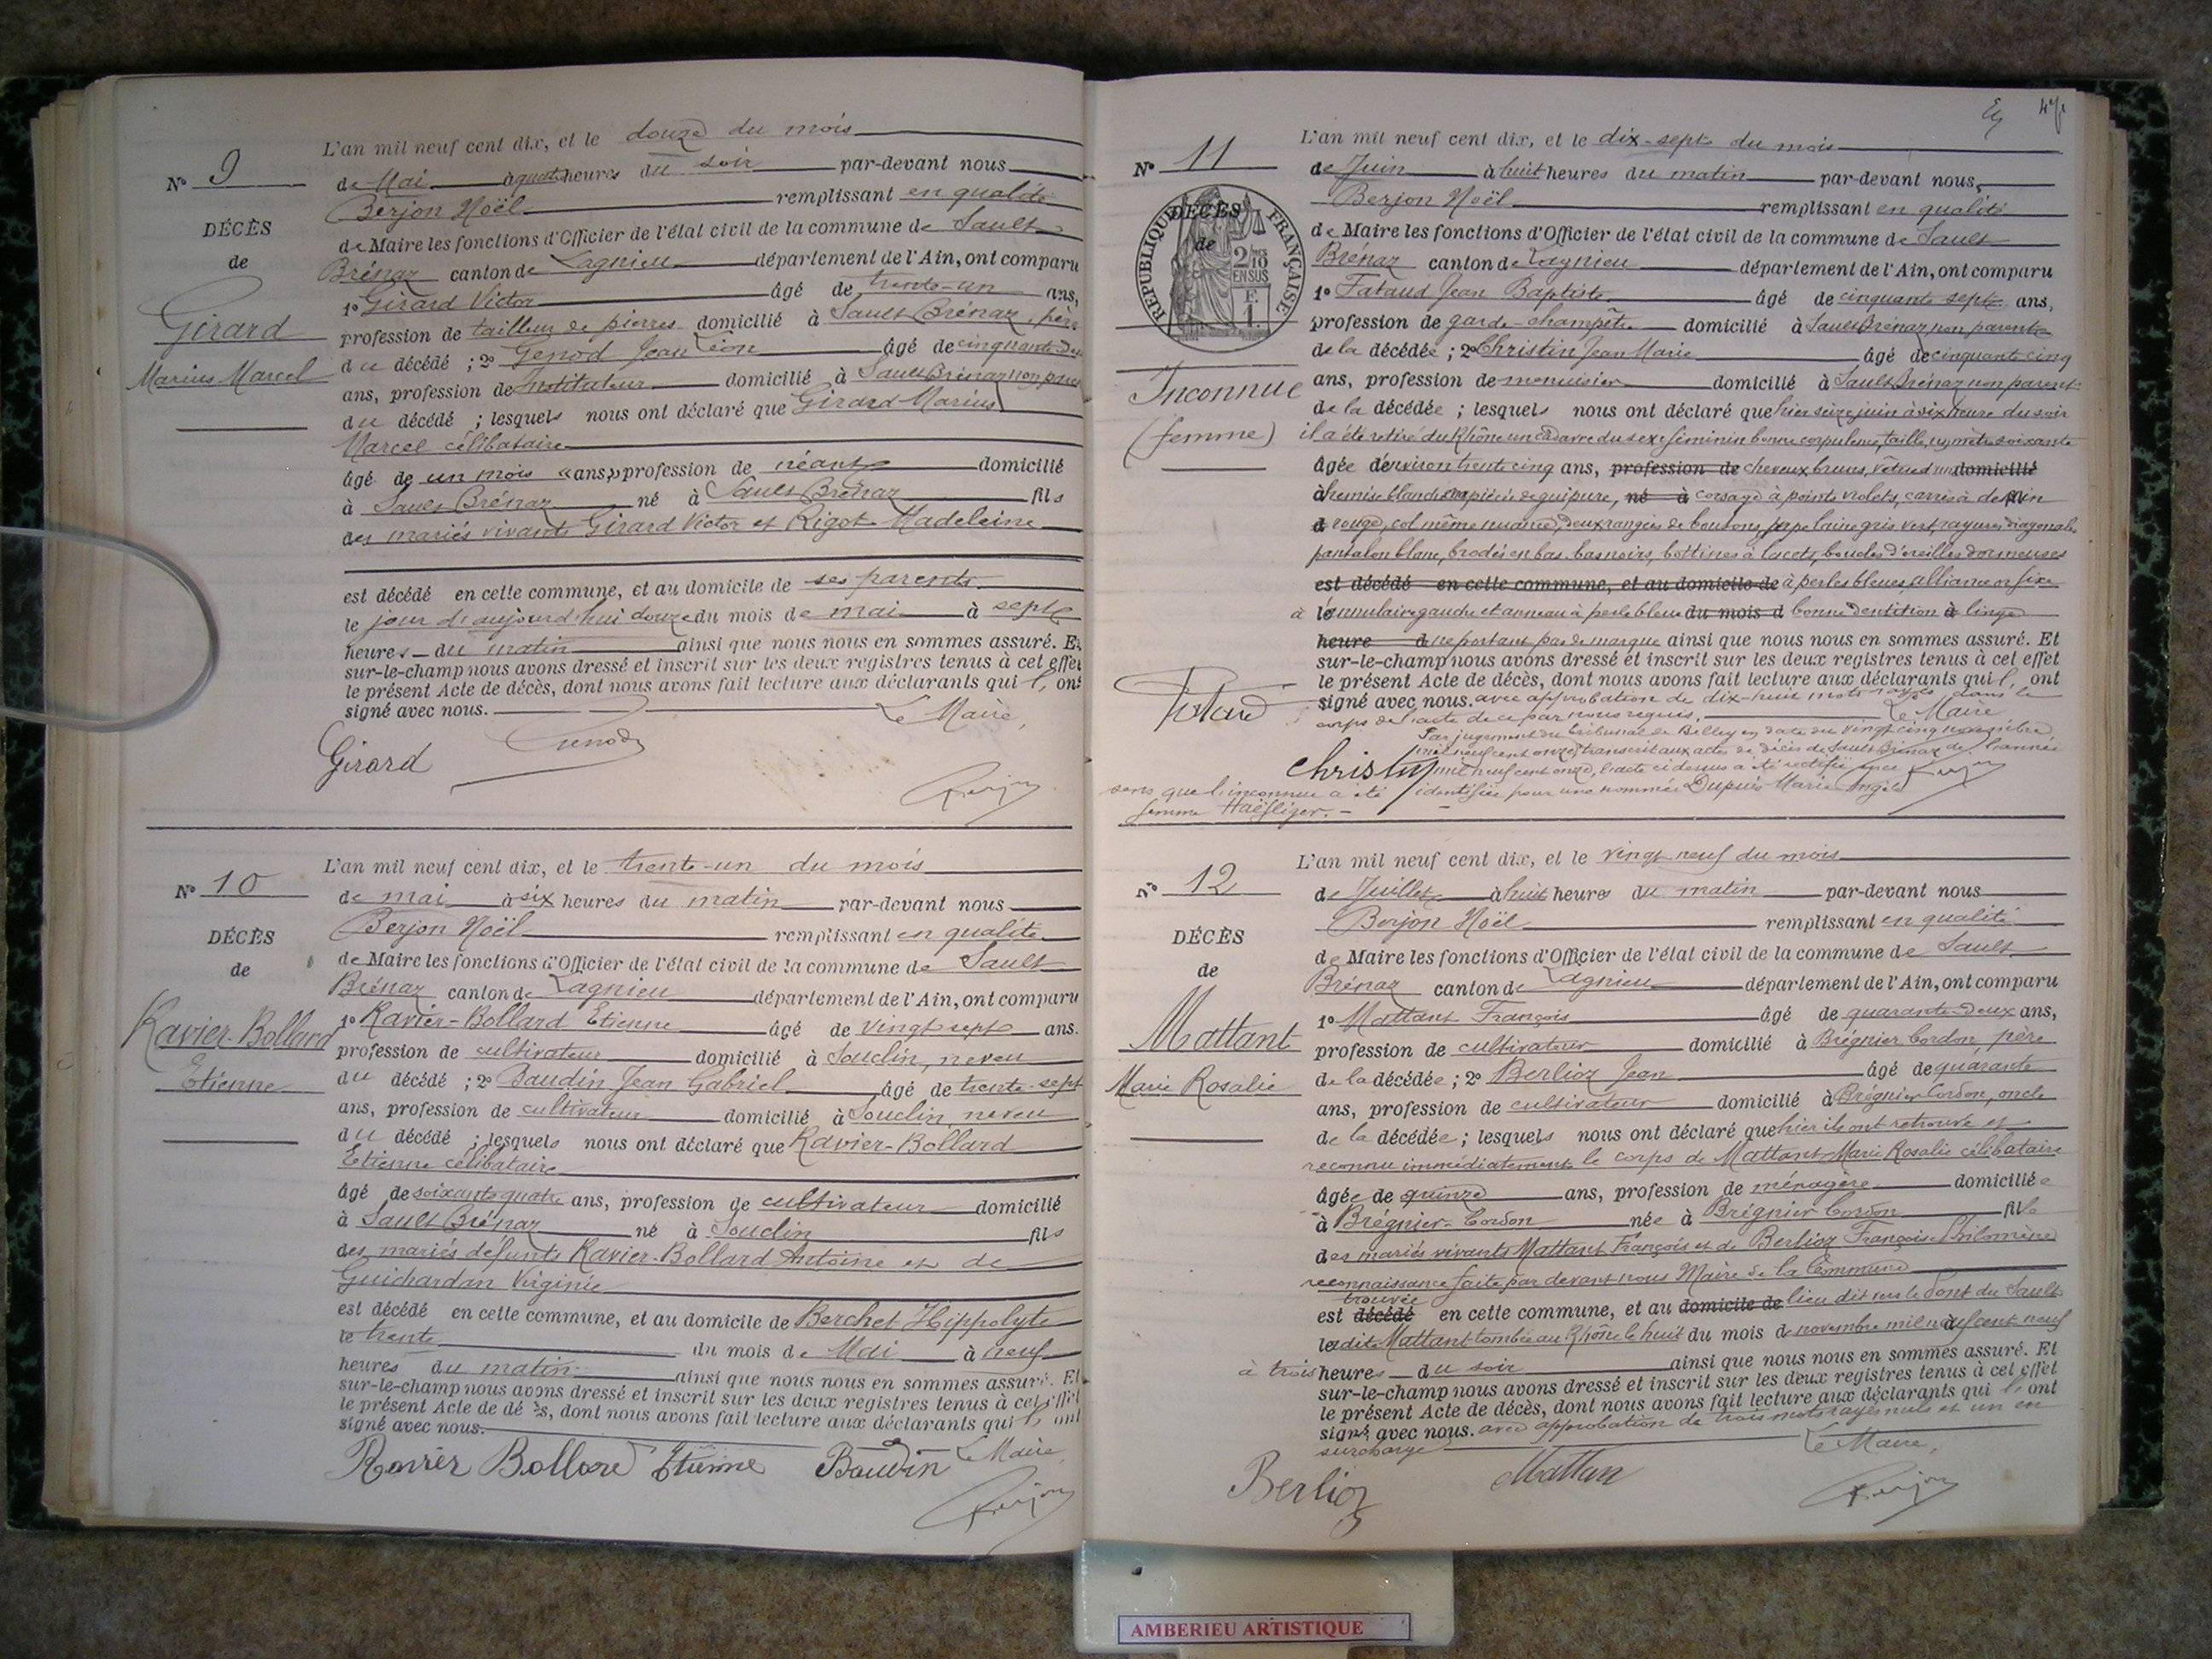 L'an mil neuf cent dix, et le douze du mois
N° 9
de Mai à quatre heures du soir par-devant nous
Berjon Noël remplissant en qualité
DÉCÈS
de Maire les fonctions d'Officier de l'état civil de la commune de Sault
de
Brénaz canton de Lagnieu département de l'Ain, ont comparu
1° Girard Victor âgé de trente-un ans,
Girard
profession de tailleur de pierres domicilié à Sault Brénaz, père
du décédé ; 2° Genod Jean Léon âgé de cinquante-deux
Marius Marcel
ans, profession de Instituteur domicilié à Sault Brénaz non parent
du décédé ; lesquels nous ont déclaré que Girard Marius
Marcel célibataire
âgé de un mois « ans » profession de néant domicilié
à Sault Brénaz né à Sault Brénaz fils
des mariés vivants Girard Victor et Rigot Madeleine
est décédé en cette commune, et au domicile de ses parents
le jour d'aujourd'hui douze du mois de mai à sept
heures du matin ainsi que nous nous en sommes assuré. Et
sur-le-champ nous avons dressé et inscrit sur les deux registres tenus à cet effet
le présent Acte de décès, dont nous avons fait lecture aux déclarants qui l'ont
signé avec nous. Le Maire,
Girard Genod
Berjon
L'an mil neuf cent dix, et le trente-un du mois
N° 10
de mai à six heures du matin par-devant nous
Berjon Noël remplissant en qualité
DÉCÈS
de Maire les fonctions d'Officier de l'état civil de la commune de Sault
de
Brénaz canton de Lagnieu département de l'Ain, ont comparu
1° Ravier-Bollard Etienne âgé de vingt sept ans.
Ravier-Bollard
profession de cultivateur domicilié à Souclin, neveu
Etienne
du décédé ; 2° Baudin Jean Gabriel âgé de trente-sept
ans, profession de cultivateur domicilié à Souclin, neveu
du décédé ; lesquels nous ont déclaré que Ravier-Bollard
Etienne célibataire
âgé de soixante quatre ans, profession de cultivateur domicilié
à Sault Brénaz né à Souclin fils
des mariés défunts Ravier-Bollard Antoine et de
Guichardan Virginie
est décédé en cette commune, et au domicile de Berchet Hippolyte
le trente du mois de Mai à neuf
heures du matin ainsi que nous nous en sommes assuré. Et
sur-le-champ nous avons dressé et inscrit sur les deux registres tenus à cet effet
le présent Acte de décès, dont nous avons fait lecture aux déclarants qui l'ont
signé avec nous.
Ravier Bollard Etienne Baudin Le Maire,
Berjon
L'an mil neuf cent dix, et le dix-sept du mois
N° 11
de Juin à huit heures du matin par-devant nous,
Berjon Noël remplissant en qualité
DÉCÈS
de
RÉPUBLIQUE FRANÇAISE
2/10
EN SUS
F.
1.
de Maire les fonctions d'Officier de l'état civil de la commune de Sault
Brénaz canton de Lagnieu département de l'Ain, ont comparu
1° Fataud Jean Baptiste âgé de cinquante sept ans,
profession de garde-champêtre domicilié à Sault Brénaz non parent
de la décédée ; 2° Christin Jean Marie âgé de cinquante cinq
Inconnue
ans, profession de menuisier domicilié à Sault Brénaz non parent
de la décédée ; lesquels nous ont déclaré que hier seize juin à six heure du soir
(femme)
il a été retiré du Rhône un cadavre du sexe féminin bonne corpulence, taille, un mètre soixante
âgée d'environ trente cinq ans, profession de cheveux bruns, vêtue d'un domicilié
à chemise blanche empiècée de guipure, né à corsage à points violets, carrés à dessin
d rouge, col même nuance, deux rangées de boutons, jupe laine gris vert, rayures diagonales
pantalon blanc, brodés en bas, bas noirs, bottines à lacets, boucles d'oreilles dormeuses
est décédé en cette commune, et au domicile de à perles bleues, alliance or fixe
à l'annulaire gauche et anneau à perle bleue du mois d bonne dentition à linge
heure d ne portant pas de marque ainsi que nous nous en sommes assuré. Et
sur-le-champ nous avons dressé et inscrit sur les deux registres tenus à cet effet
le présent Acte de décès, dont nous avons fait lecture aux déclarants qui l'ont
signé avec nous. avec approbation de dix-huit mots rayés dans le
corps de l'acte de ce par nous requis. Le Maire
Fataud
Par jugement du tribunal de Belley en date du vingt cinq novembre
mil neuf cent onze, transcrit aux actes de décès de Sault Brénaz de l'année
Christin mil neuf cent onze, l'acte ci dessus a été rectifié en ce Berjon
sens que l'inconnue a été identifiée pour une nommée Dupuis Marie Angèle
femme Haëfliger.
L'an mil neuf cent dix, et le vingt neuf du mois
N° 12
de Juillet à huit heures du matin par-devant nous
Berjon Noël remplissant en qualité
DÉCÈS
de Maire les fonctions d'Officier de l'état civil de la commune de Sault
de
Brénaz canton de Lagnieu département de l'Ain, ont comparu
1° Mattant François âgé de quarante-deux ans,
Mattant
profession de cultivateur domicilié à Brégnier Cordon, père
de la décédée ; 2° Berlioz Jean âgé de quarante
Marie Rosalie
ans, profession de cultivateur domicilié à Brégnier Cordon, oncle
de la décédée ; lesquels nous ont déclaré que hier ils ont retrouvé et
reconnu immédiatement le corps de Mattant Marie Rosalie célibataire
âgée de quinze ans, profession de ménagère domiciliée
à Brégnier-Cordon née à Brégnier Cordon fille
des mariés vivants Mattant François et de Berlioz Françoise Philomène
reconnaissance faite par devant nous Maire de la Commune
trouvée
est décédé en cette commune, et au domicile de lieu dit sur le Pont du Sault
ladite Mattant tombée au Rhône le huit du mois de novembre mil neuf cent neuf
à trois heures du soir ainsi que nous nous en sommes assuré. Et
sur-le-champ nous avons dressé et inscrit sur les deux registres tenus à cet effet
le présent Acte de décès, dont nous avons fait lecture aux déclarants qui l'ont
signé avec nous. avec approbation de trois mots rayés nuls et un en
surcharge Le Maire,
Berlioz Mattan Berjon
AMBERIEU ARTISTIQUE